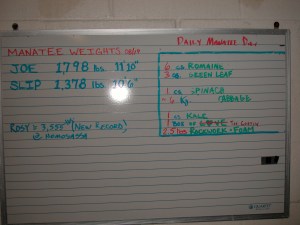 MANATEE WEIGHTS
JOE 1,798 lbs 11'10"
SLIP 1,378 lbs 10'6"
ROSY > 3,555 lbs (NEW RECORD)
@ HOMOSASSA
DAILY MANATEE
6 cs ROMAINE
GREEN LEAF
1 cs SPINACH
CABBAGE
1 cs KALE
1 BOX OF LOVE
2.5 lbs ROCKWORK-FOAM